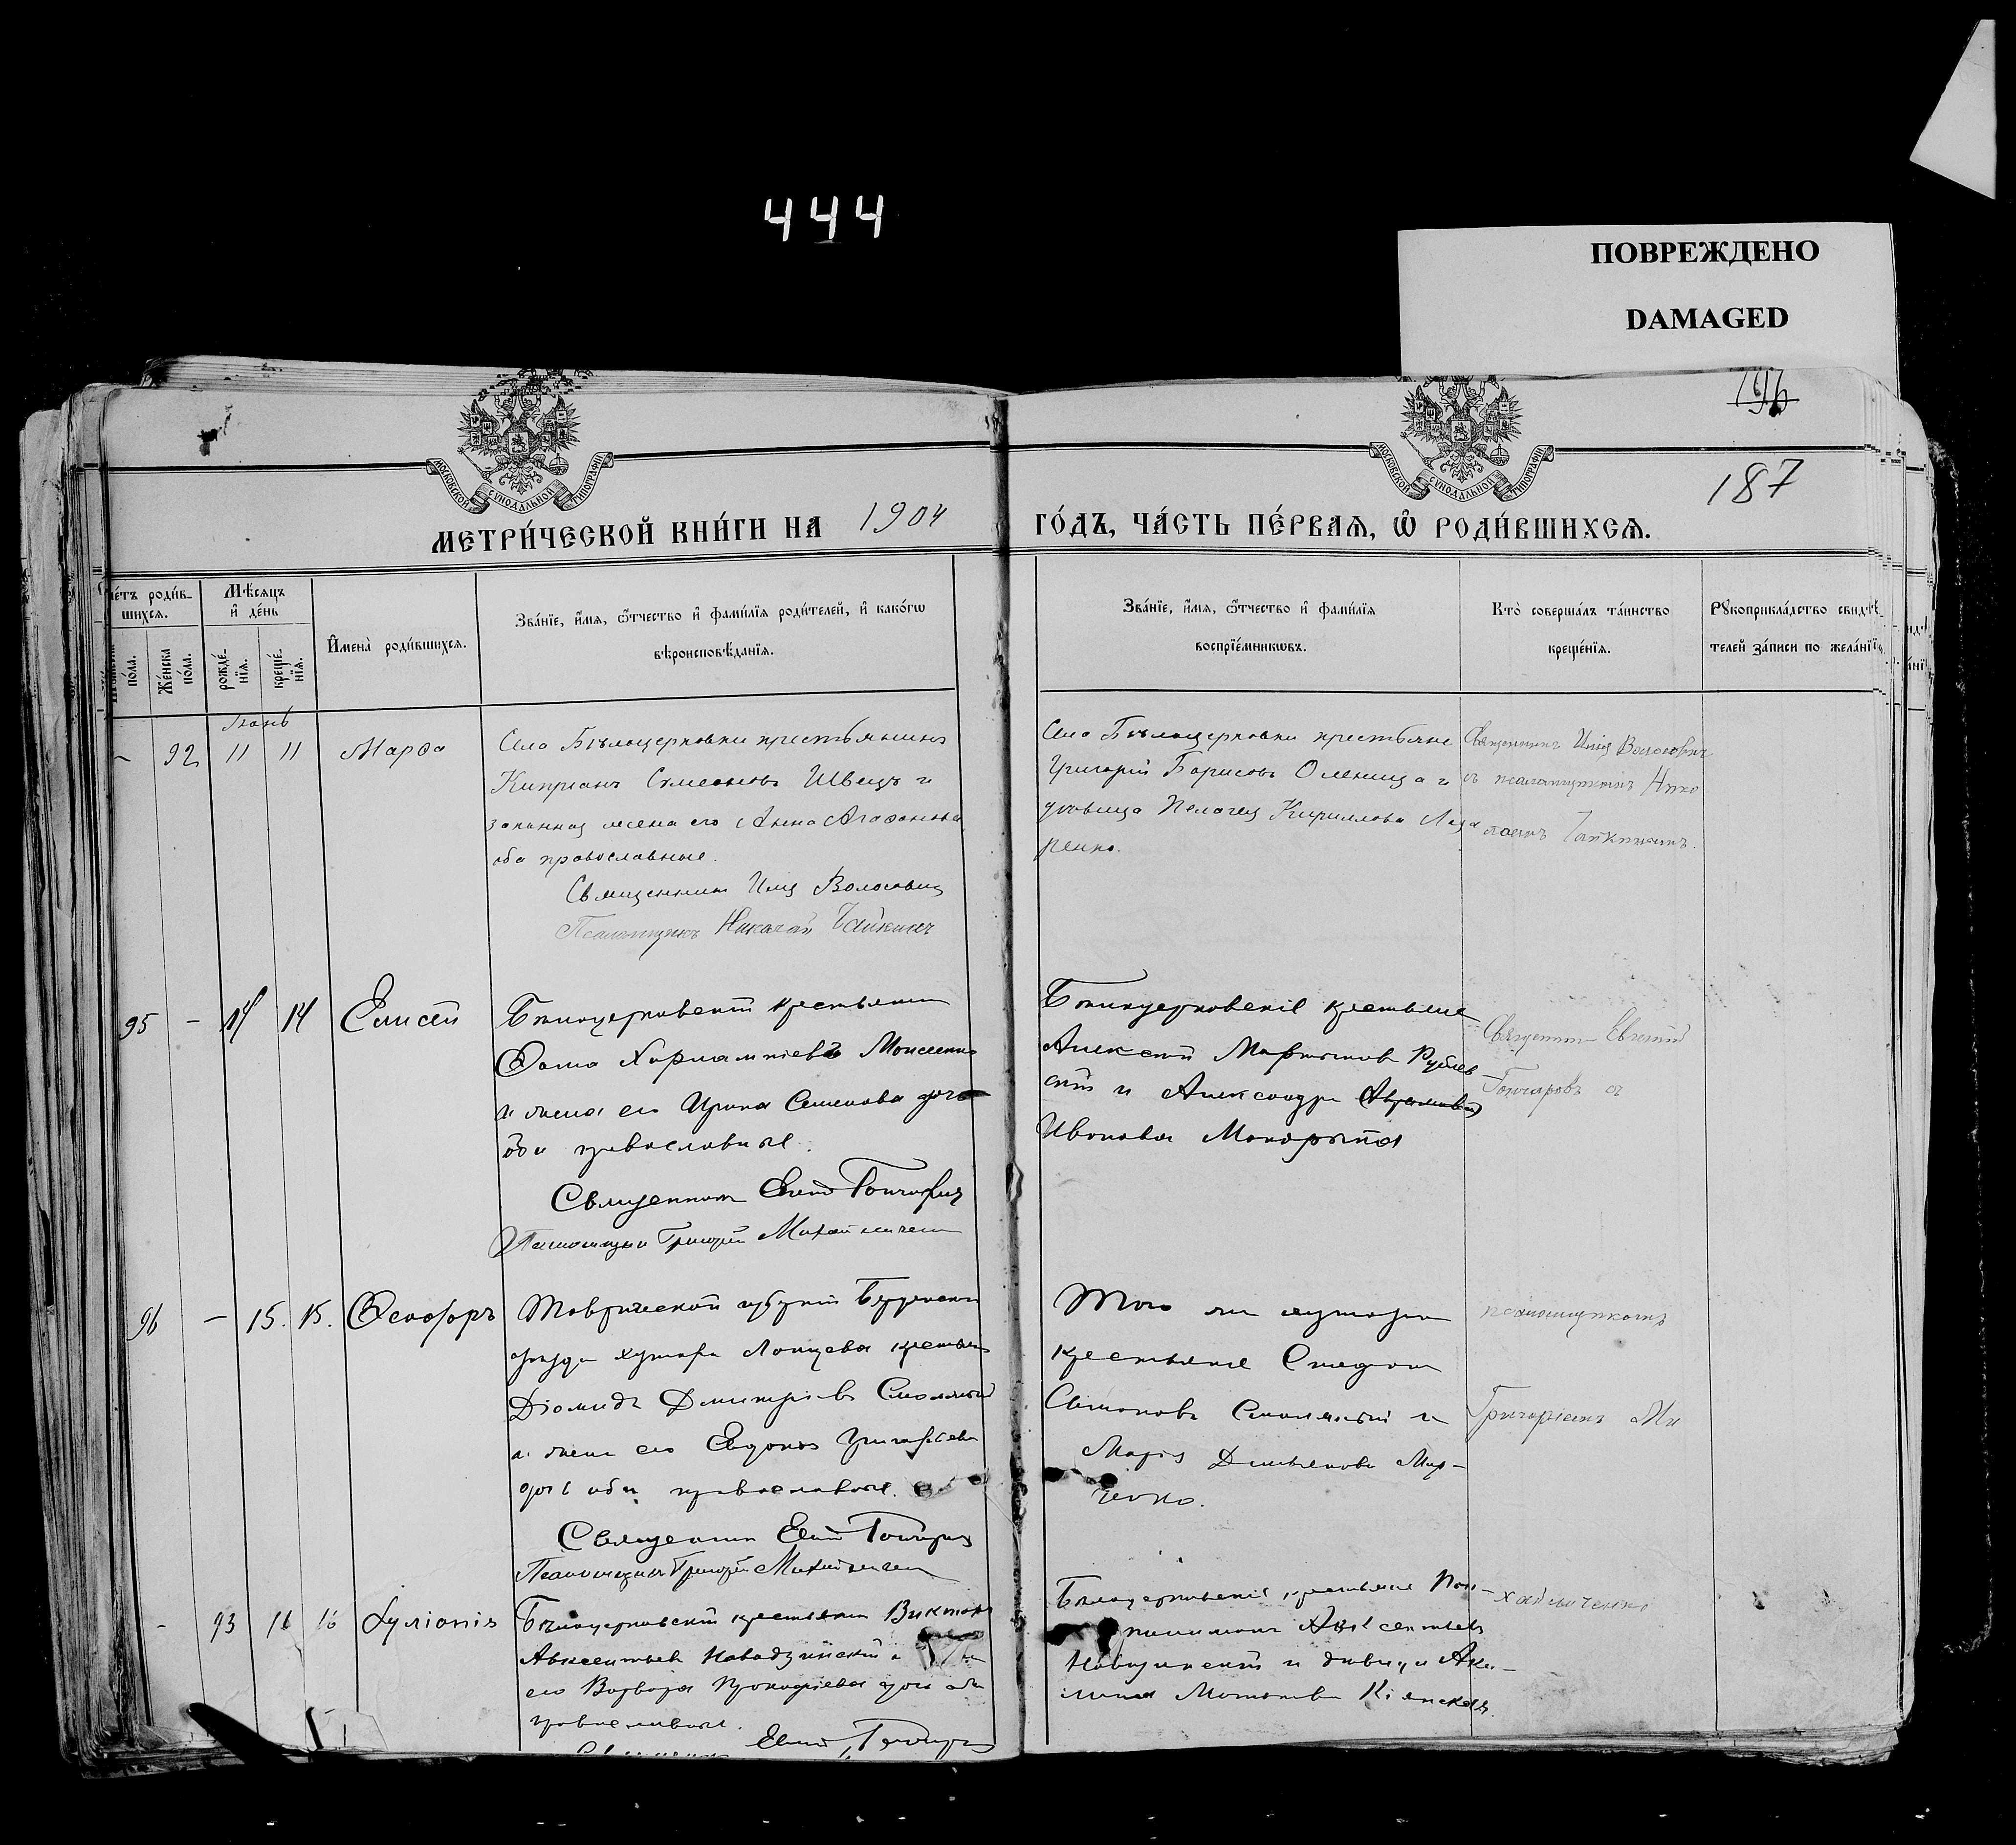 444
ПОВРЕЖДЕНО
DAMAGED
196
187
МОСКОВСКОЙ СѴНОДАЛЬНОЙ ТИПОГРАФІИ
МОСКОВСКОЙ СѴНОДАЛЬНОЙ ТИПОГРАФІИ
МЕТРИ́ЧЕСКОЙ КНИ́ГИ НА 1904
ГО́ДЪ, ЧА́СТЬ ПЕ́РВАѦ, Ѽ РОДИ́ВШИХСѦ.
роди́в-
шихсѧ.
по́ла.
Же́нска
по́ла.
Мѣ́сѧцъ
и҆ де́нь
рожде́-
нїѧ.
креще́-
нїѧ.
И҆мена̀ роди́вшихсѧ.
Зва́нїе, и҆́мѧ, ѻ҆́тчество и҆ фами́лїѧ роди́телей, и҆ како́гѡ
вѣроисповѣ́данїѧ.
Зва́нїе, и҆́мѧ, ѻ҆́тчество и҆ фами́лїѧ
воспрїе́мникѡвъ.
Кто̀ соверша́лъ та́инство
креще́нїѧ.
Рꙋкоприкла́дство свидѣ́-
телей за́писи по жела́нїю
Іюнь
– 92 11 11 Марѳа
Села Бѣлоцерковки крестьянинъ
Кипріанъ Симеоновъ Швецъ и
законная жена его Анна Агаѳонова
оба православные.
Священникъ Илія Волосовичъ
Псаломщикъ Николай Чайкинъ
Села Бѣлоцерковки крестьяне
Григорій Борисовъ Оленица и
дѣвица Пелагея Кириллова Лаза
ренко.
Священникъ Илія Волосовичъ
съ псаломщикомъ Нико
лаемъ Чайкинымъ.
95 – 14 14 Елисей
Бѣлоцерковскій крестьянинъ
Ѳома Харлампіевъ Моисеенко
и жена его Ирина Семенова
оба православные.
Священникъ Евгеній Гончаровъ
Псаломщикъ Григорій Михайличенко
Бѣлоцерковскіе крестьяне
Алексѣй Мартыновъ Рублев
скій и Александра
Иванова
Священникъ Евгеній
Гончаровъ съ
96 – 15. 15. Ѳеофоръ
Таврической губерніи Бердянскаго
уѣзда хутора крестьян
Діомидъ Дмитріевъ Смоляный
и жена его Евдокія Григорьева
оба православные.
Священникъ Евгеній Гончаровъ
Псаломщикъ Григорій Михайличенко
Того же хутора
крестьяне
Смоляный и
Марія Демьянова Мар-
ченко.
псаломщикомъ
Григоріемъ Ми
– 93 16 16 Іуліанія
Бѣлоцерковскій крестьянинъ Викторъ
Авксентьевъ и
его Варвара Прокофіева оба
православные.
Евгеній Гончаровъ
Бѣлоцерковскіе крестьяне Пан-
телимонъ Авксентьевъ
и дѣвица Аку-
лина Кіянская.
хайличенко